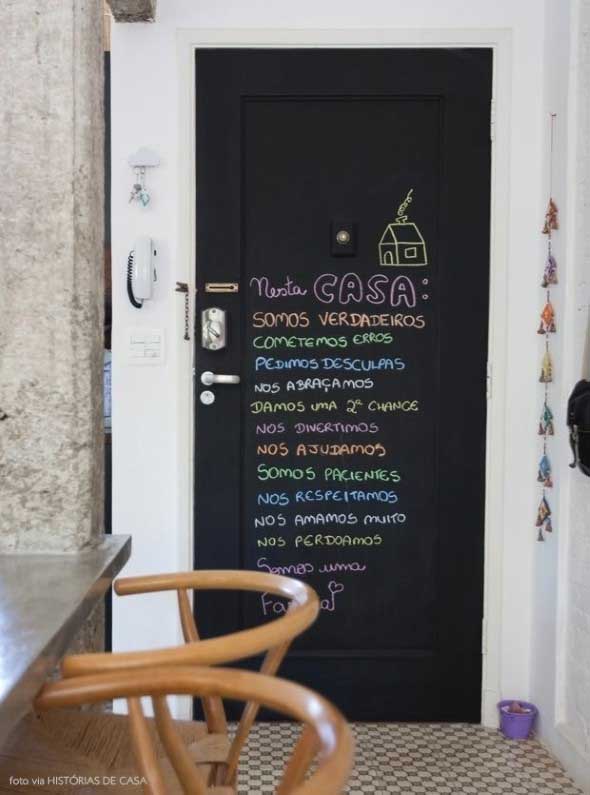 Nesta CASA:
SOMOS VERDADEIROS
COMETEMOS ERROS
PEDIMOS DESCULPAS
NOS ABRAÇAMOS
DAMOS UMA 2ª CHANCE
NOS DIVERTIMOS
NOS AJUDAMOS
SOMOS PACIENTES
NOS RESPEITAMOS
NOS AMAMOS MUITO
NOS PERDOAMOS
Somos uma
foto via HISTÓRIAS DE CASA